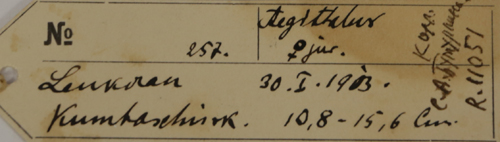 Nº 257. Aegithalus
♀ jur.
Lenkoran 30. I. 1903.
Kumbaschinsk. 10,8-15,6 Cm.
Колл.
С.А.Бутурлина
R.11051